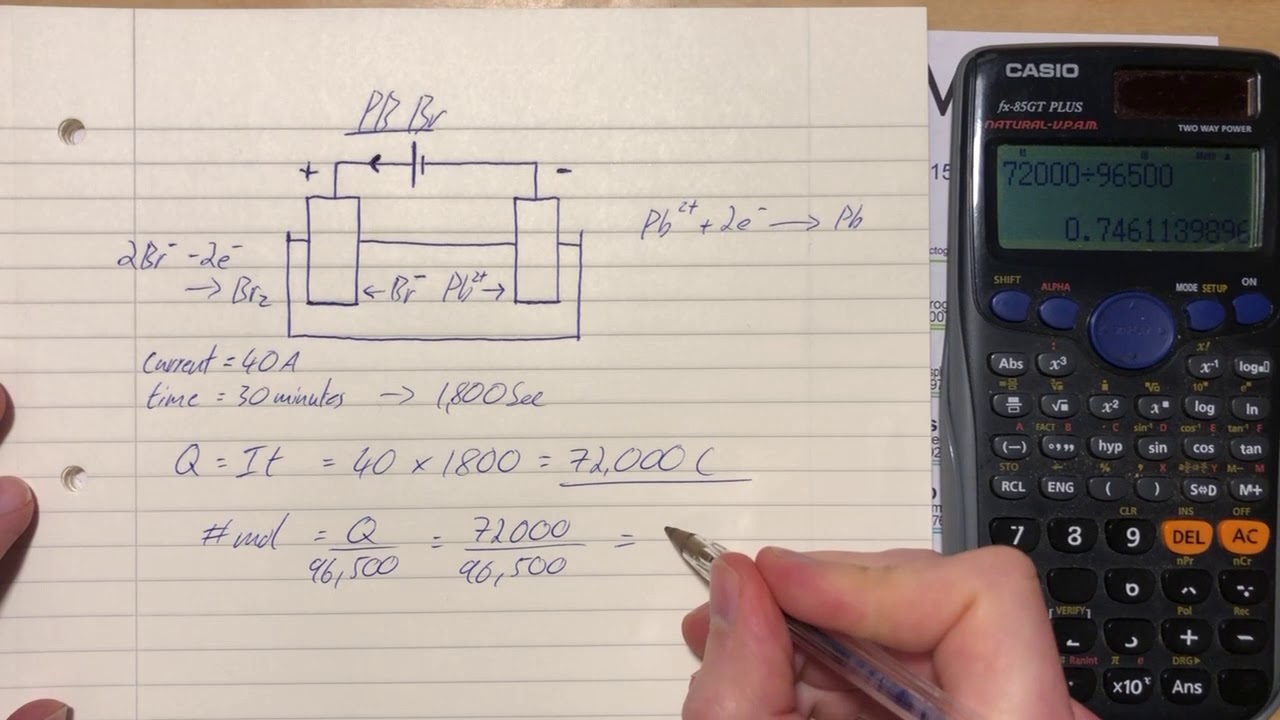 PB Br
+ -
2Br⁻ -2e⁻
→ Br₂
← Br⁻ Pb²⁺ →
Pb²⁺ + 2e⁻ → Pb
Current = 40A
time = 30 minutes → 1,800 Sec
Q = It = 40 × 1800 = 72,000 C
# mol = Q/96,500 = 72000/96,500 =
CASIO
fx-85GT PLUS
NATURAL-V.P.A.M.
TWO WAY POWER
72000÷96500
0.7461139896
SHIFT ALPHA MODE SETUP ON
Abs x³ x⁻¹ log
√ x² log ln
(−) hyp sin cos tan
STO
RCL ENG ( ) S⇔D M+
CLR INS OFF
7 8 9 DEL AC
nPr nCr
[VERIFY] Pol Rec
+ −
RanInt π e DRG▶
×10ˣ Ans